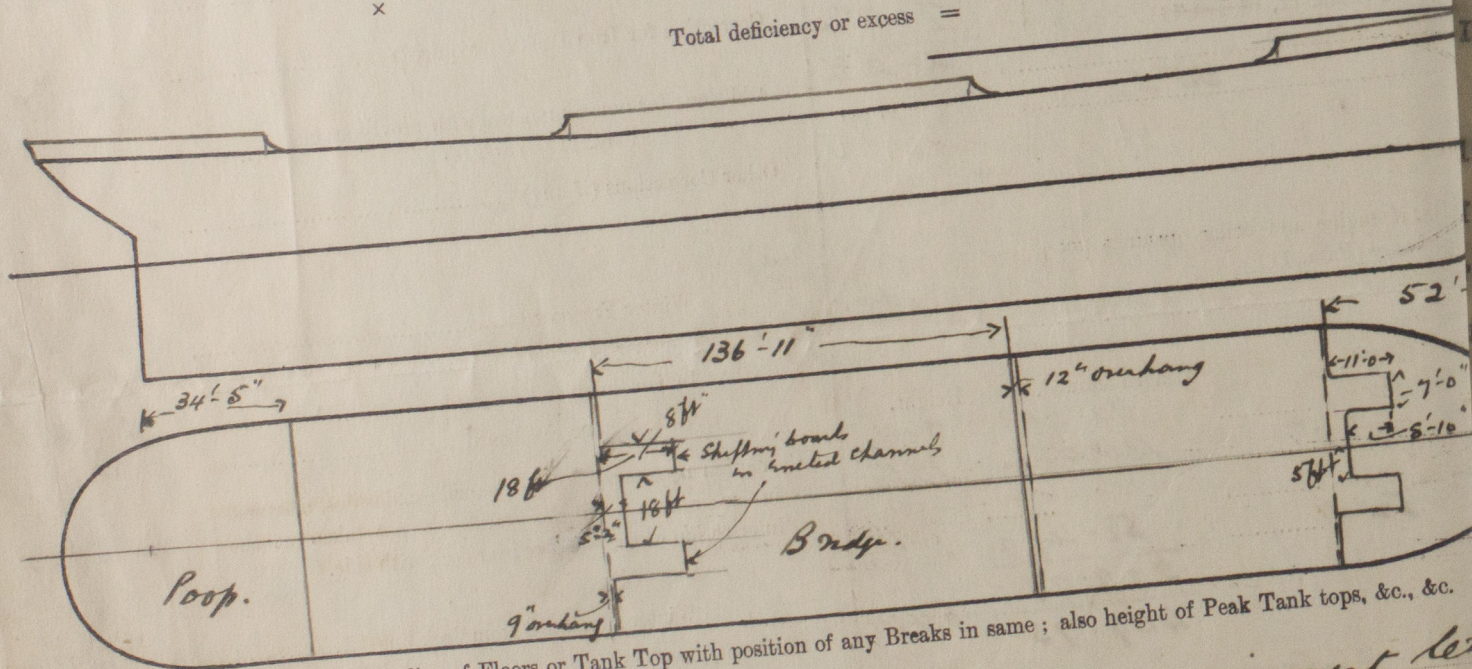 ×
Total deficiency or excess =
52'-
136'-11"
34'-5"
12" overhang
11'-0
7'-0"
8 ft
Shifting boards
in riveted channels
5'-10
18 ft
18 ft
5 ft
Bridge.
Poop.
9" overhang
Floors or Tank Top with position of any Breaks in same ; also height of Peak Tank tops, &c., &c.